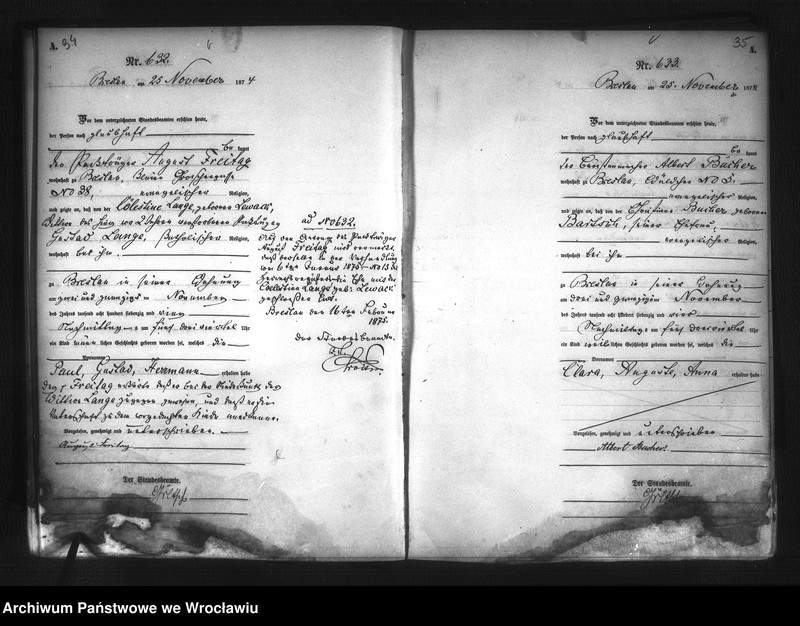 A. 34
Nr. 632.
Breslau am 25 November 1874
Vor dem unterzeichneten Standesbeamten erschien heute,
der Person nach glaubhaft
bekannt
August Freitag
wohnhaft zu Breslau,
No 38, evangelischer Religion,
und zeigte an, daß von der Cölestine Lange, geborenen Lewack,
Gustav Lange, katholischer Religion,
wohnhaft bei ihm
zu Breslau in seiner Wohnung
am zwei und zwanzigsten November
des Jahres tausend acht hundert siebenzig und vier
Nachmittags um fünf drei viertel Uhr
ein Kind männlichen Geschlechts geboren worden sei, welches die
Vornamen
Paul, Gustav, Hermann erhalten habe
Freitag erklärte, daß er bei der Niederkunft der
Wittwe Lange zugegen gewesen, und daß er die
Vaterschaft zu dem vorgedachten Kinde anerkenne.
Vorgelesen, genehmigt und unterschrieben.
August Freitag
Der Standesbeamte.
ad No 632.
August Freitag wird vermerkt,
daß derselbe in der Verhandlung
vom 6ten Januar 1875 No 13 des
die Ehe mit der
Cölestine Lange geb: Lewack
geschlossen hat.
Breslau den 16ten Februar
1875.
der Standesbeamte.
35 A.
Nr. 633.
Breslau am 25. November 187
Vor dem unterzeichneten Standesbeamten erschien heute,
der Person nach glaubhaft
bekannt
der Albert Bucher
wohnhaft zu Breslau, No 3.
evangelischer Religion,
und zeigte an, daß von der Christiane Bucher geborenen
Bartsch, seiner Ehefrau,
evangelischer Religion,
wohnhaft bei ihm
zu Breslau in seiner Wohnung
am drei und zwanzigsten November
des Jahres tausend acht hundert siebenzig und vier
Nachmittags um fünf drei viertel Uhr
ein Kind weiblichen Geschlechts geboren worden sei, welches die
Vornamen
Clara, Auguste, Anna erhalten habe
Vorgelesen, genehmigt und unterschrieben
Albert Bucher
Der Standesbeamte.
Archiwum Państwowe we Wrocławiu